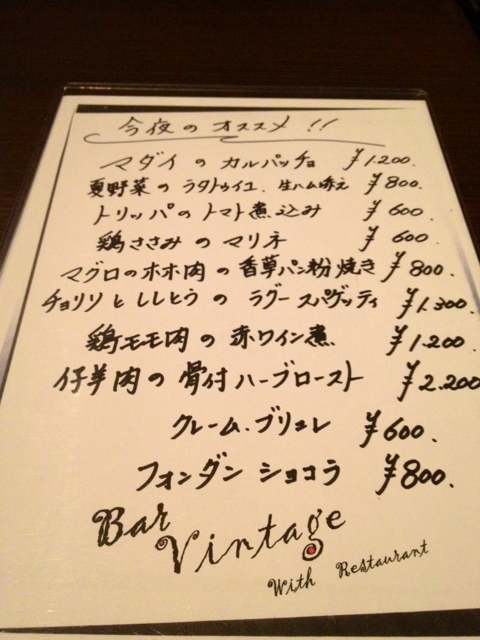 今夜のオススメ!!
マダイのカルパッチョ ¥1.200.
夏野菜のラタトゥイユ.生ハム添え ¥800.
トリッパのトマト煮込み ¥600.
鶏ささみのマリネ ¥600.
マグロのホホ肉の香草パン粉焼き ¥800.
チョリソとししとうのラグースパゲッティ ¥1.300.
鶏モモ肉の赤ワイン煮 ¥1.200.
仔羊肉の骨付ハーブロースト ¥2.200
クレーム.ブリュレ ¥600.
フォンダンショコラ ¥800.
Bar
Vintage
With Restaurant